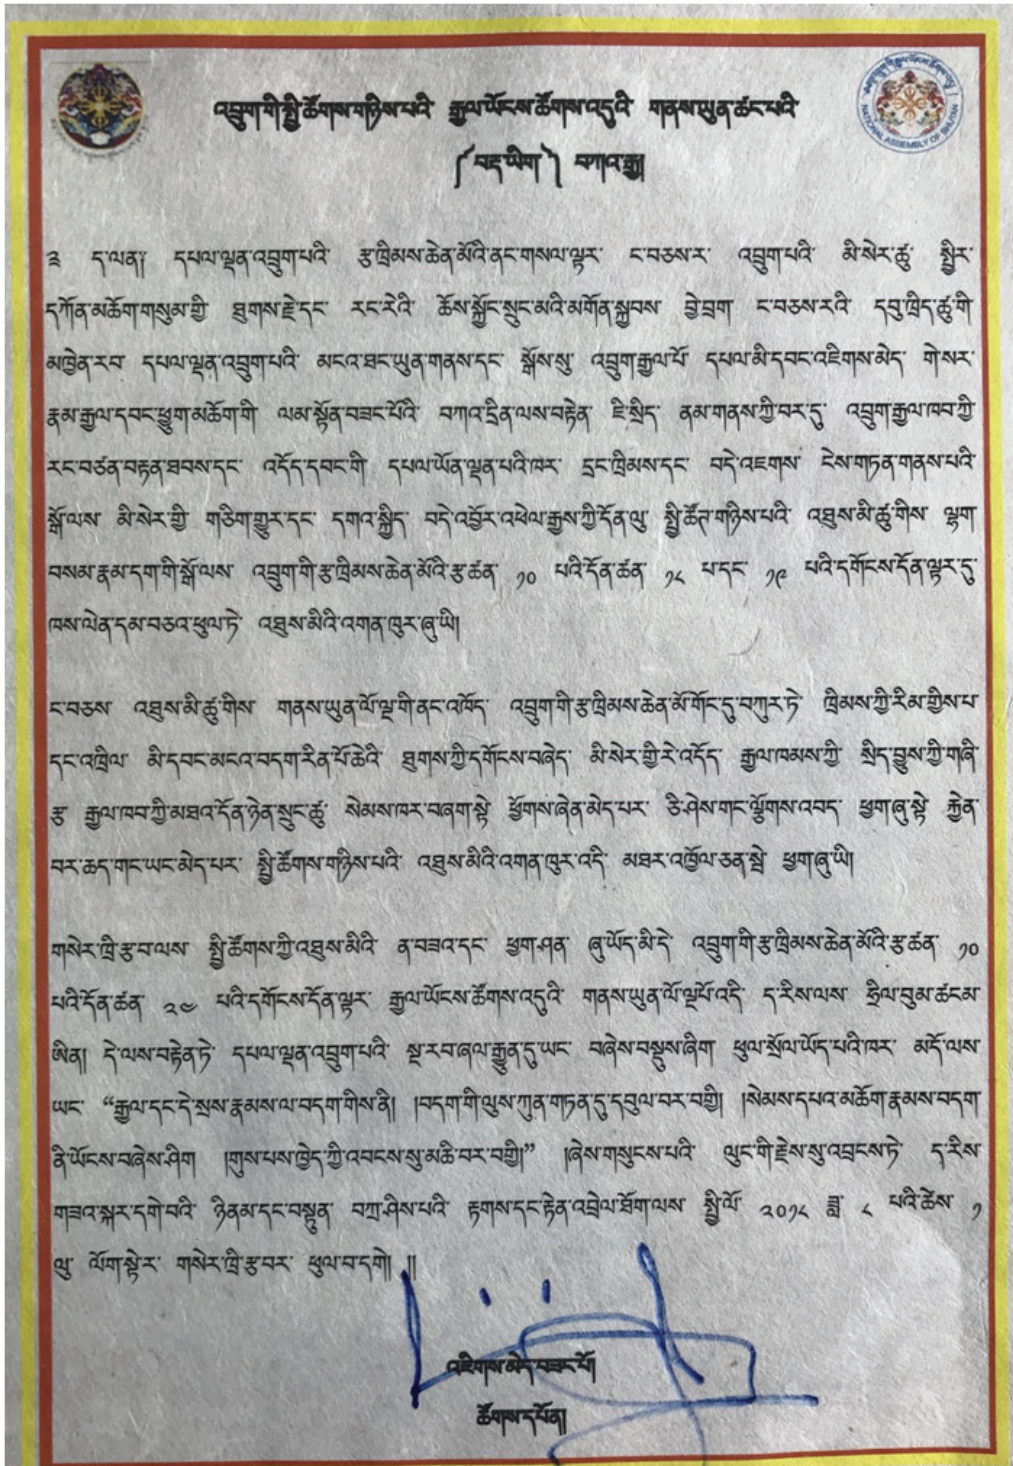 NATIONAL ASSEMBLY OF BHUTAN
འབྲུག་གི་སྤྱི་ཚོགས་གཉིས་པའི་ རྒྱལ་ཡོངས་ཚོགས་འདུའི་ གནས་ཡུན་ཚང་པའི་
༼ བརྡ་ཡིག་ ༽ བཀའ་རྒྱ།
༉ ད་ལན༷་ དཔལ་ལྡན་འབྲུག་པའི་ རྩ་ཁྲིམས་ཆེན་མོའི་ནང་གསལ་ལྟར་ ང་བཅས་ར་ འབྲུག་པའི་ མི་སེར་ཚུ་ སྤྱིར་
དཀོན་མཆོག་གསུམ་གྱི་ ཐུགས་རྗེ་དང་ རང་རེའི་ ཆོས་སྐྱོང་སྲུང་མའི་མགོན་སྐྱབས་ བྱེ་བྲག་ ང་བཅས་རའི་ དབུ་ཁྲིད་ཚུ་གི་
མཁྱེན་རབ་ དཔལ་ལྡན་འབྲུག་པའི་ མངའ་ཐང་ཡུན་གནས་དང་ སྒོས་སུ་ འབྲུག་རྒྱལ་པོ་ དཔལ་མི་དབང་འཇིགས་མེད་ གེ་སར་
རྣམ་རྒྱལ་དབང་ཕྱུག་མཆོག་གི་ ལམ་སྟོན་བཟང་པོའི་ བཀའ་དྲིན་ལས་བརྟེན་ ཇི་སྲིད་ ནམ་གནས་ཀྱི་བར་དུ་ འབྲུག་རྒྱལ་ཁབ་ཀྱི་
རང་བཙན་བརྟན་ཐབས་དང་ འདོད་དབང་གི་ དཔལ་ཡོན་ལྡན་པའི་ཁར་ དྲང་ཁྲིམས་དང་ བདེ་འཇགས་ ངེས་གཏན་གནས་པའི་
སྒོ་ལས་ མི་སེར་གྱི་ གཅིག་གྱུར་དང་ དགའ་སྐྱིད་ བདེ་འབྱོར་འཕེལ་རྒྱས་ཀྱི་དོན་ལུ་ སྤྱི་ཚོཊ་གཉིས་པའི་ འཐུས་མི་ཚུ་གིས་ ལྷག་
བསམ་རྣམ་དག་གི་སྒོ་ལས་ འབྲུག་གི་རྩ་ཁྲིམས་ཆེན་མོའི་རྩ་ཚན་ ༡༠ པའི་དོན་ཚན་ ༡༨ པ་དང་ ༡༩ པའི་དགོངས་དོན་ལྟར་དུ་
ཁས་ལེན་དམ་བཅའ་ཕུལ་ཏེ་ འཐུས་མིའི་འགན་ཁུར་ཞུ་ཡི།
ང་བཅས་ འཐུས་མི་ཚུ་གིས་ གནས་ཡུན་ལོ་ལྔ་གི་ནང་འཁོད་ འབྲུག་གི་རྩ་ཁྲིམས་ཆེན་མོ་གོང་དུ་བཀུར་ཏེ་ ཁྲིམས་ཀྱི་རིམ་གྱིས་པ་
དང་འཁྲིལ་ མི་དབང་མངའ་བདག་རིན་པོ་ཆེའི་ ཐུགས་ཀྱི་དགོངས་བཞེད་ མི་སེར་གྱི་རེ་འདོད་ རྒྱལ་ཁམས་ཀྱི་ སྲིད་བྱུས་ཀྱི་གཞི་
རྩ་ རྒྱལ་ཁབ་ཀྱི་མཐའ་དོན་ཉེན་སྲུང་ཚུ་ སེམས་ཁར་བཞག་སྟེ་ ཕྱོགས་ཞེན་མེད་པར་ ཅི་ཤེས་གང་ལྕོགས་འབད་ ཕྱག་ཞུ་སྟེ་ རྐྱེན་
བར་ཆད་གང་ཡང་མེད་པར་ སྤྱི་ཚོགས་གཉིས་པའི་ འཐུས་མིའི་འགན་ཁུར་འདི་ མཐར་འཁྱོལ་ཅན་སྦེ་ ཕྱག་ཞུ་ཡི།
གསེར་ཁྲི་རྩ་བ་ལས་ སྤྱི་ཚོགས་ཀྱི་འཐུས་མིའི་ ན་བཟའ་དང་ ཕྱག་ཤན་ ཞུ་ཡོད་མི་དེ་ འབྲུག་གི་རྩ་ཁྲིམས་ཆེན་མོའི་རྩ་ཚན་ ༡༠
པའི་དོན་ཚན་ ༢༤ པའི་དགོངས་དོན་ལྟར་ རྒྱལ་ཡོངས་ཚོགས་འདུའི་ གནས་ཡུན་ལོ་ལྔཔོ་འདི་ ད་རིས་ལས་ ཧྲིལ་བུམ་ཚངམ་
ཨིན། དེ་ལས་བརྟེན་ཏེ་ དཔལ་ལྡན་འབྲུག་པའི་ སྔ་རབ་ཞལ་རྒྱུན་དུ་ཡང་ བཞེས་བསྡུས་ཞིག་ ཕུལ་སྲོལ་ཡོད་པའི་ཁར་ མདོ་ལས་
ཡང་ “རྒྱལ་དང་དེ་སྲས་རྣམས་ལ་བདག་གིས་ནི། །བདག་གི་ལུས་ཀུན་གཏན་དུ་དབུལ་བར་བགྱི། །སེམས་དཔའ་མཆོག་རྣམས་བདག་
ནི་ཡོངས་བཞེས་ཤིག །གུས་པས་ཁྱེད་ཀྱི་འབངས་སུ་མཆི་བར་བགྱི།” །ཞེས་གསུངས་པའི་ ལུང་གི་རྗེས་སུ་འབྲངས་ཏེ་ ད་རིས་
གཟའ་སྐར་དགེ་བའི་ ཉིནམ་དང་བསྟུན་ བཀྲ་ཤིས་པའི་ རྟགས་དང་རྟེན་འབྲེལ་ཐོག་ལས་ སྤྱི་ལོ་ ༢༠༡༨ ཟླ་ ༨ པའི་ཚེས་ ༡
ལུ་ ལོག་སྟེ་ར་ གསེར་ཁྲི་རྩ་བར་ ཕུལ་བ་དགེ། །།
འཇིགས་མེད་བཟང་པོ།
ཚོགས་དཔོན།